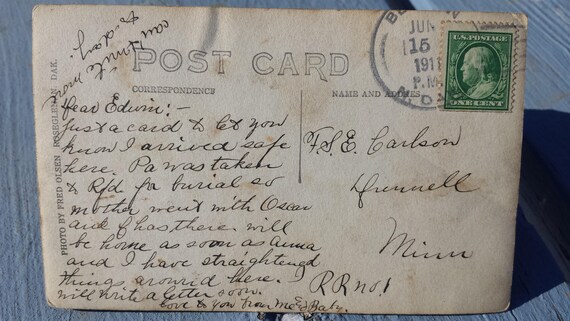 can't write more
today
POST CARD
CORRESPONDENCE
NAME AND ADDRESS
JUN
15
1911
P.M.
U.S. POSTAGE
ONE CENT
Dear Edwin:-
Just a card to let you
know I arrived safe
here. Pa was taken
to Rfd for burial so
mother went with Oscar
and Chas there. will
be home as soon as Anna
and I have straightened
things around here.
will write a letter soon.
Love to you from me & Baby.
F.S.E. Carlson
Dunnell
Minn
R R no. 1
PHOTO BY FRED OLSEN ROSEGLEN N. DAK.